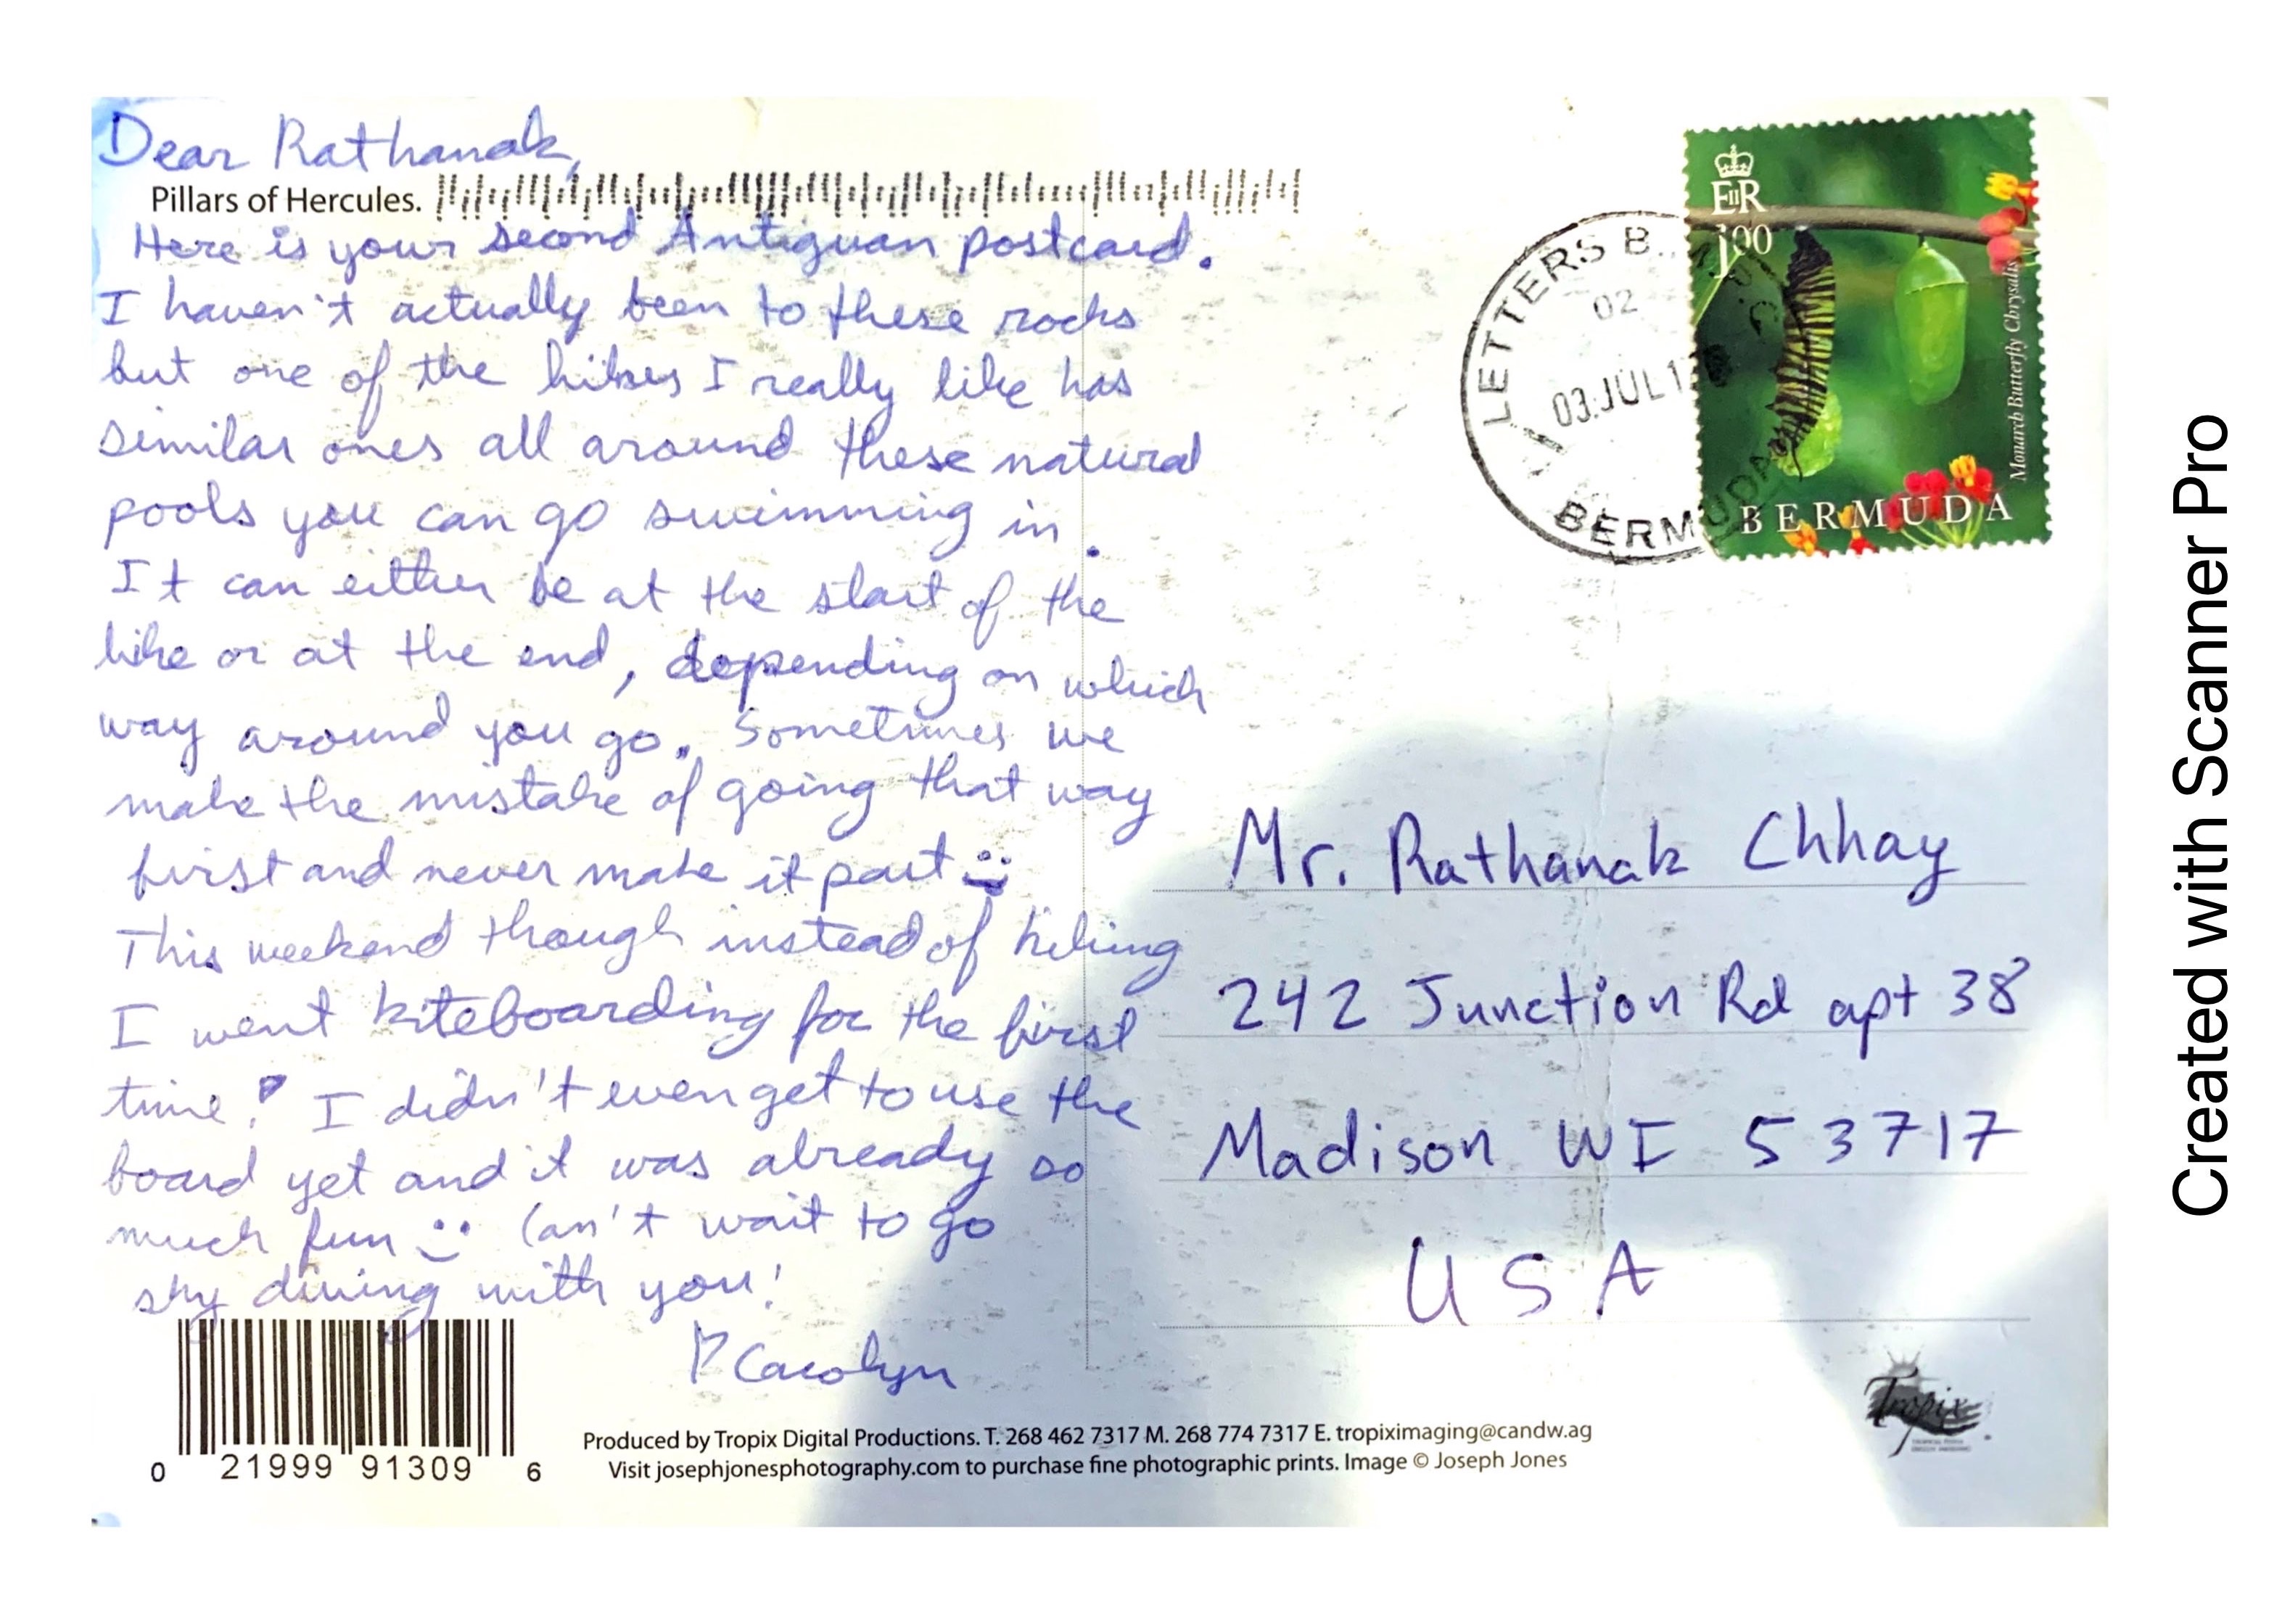 Dear Rathanak,
Pillars of Hercules.
Here is your second Antiguan postcard.
I haven't actually been to these rocks
but one of the hikes I really like has
similar ones all around these natural
pools you can go swimming in.
It can either be at the start of the
hike or at the end, depending on which
way around you go. Sometimes we
make the mistake of going that way
first and never make it past
This weekend though instead of hiking
I went kiteboarding for the first
time! I didn't even get to use the
board yet and it was already so
much fun Can't wait to go
sky diving with you!
Carolyn
0 21999 91309 6
LETTERS B
02
03 JUL 1
BERMUDA
EIIR
100
Monarch Butterfly Chrysalis
BERMUDA
Mr. Rathanak Chhay
242 Junction Rd apt 38
Madison WI 53717
USA
Tropix
Produced by Tropix Digital Productions. T. 268 462 7317 M. 268 774 7317 E. tropiximaging@candw.ag
Visit josephjonesphotography.com to purchase fine photographic prints. Image © Joseph Jones
Created with Scanner Pro